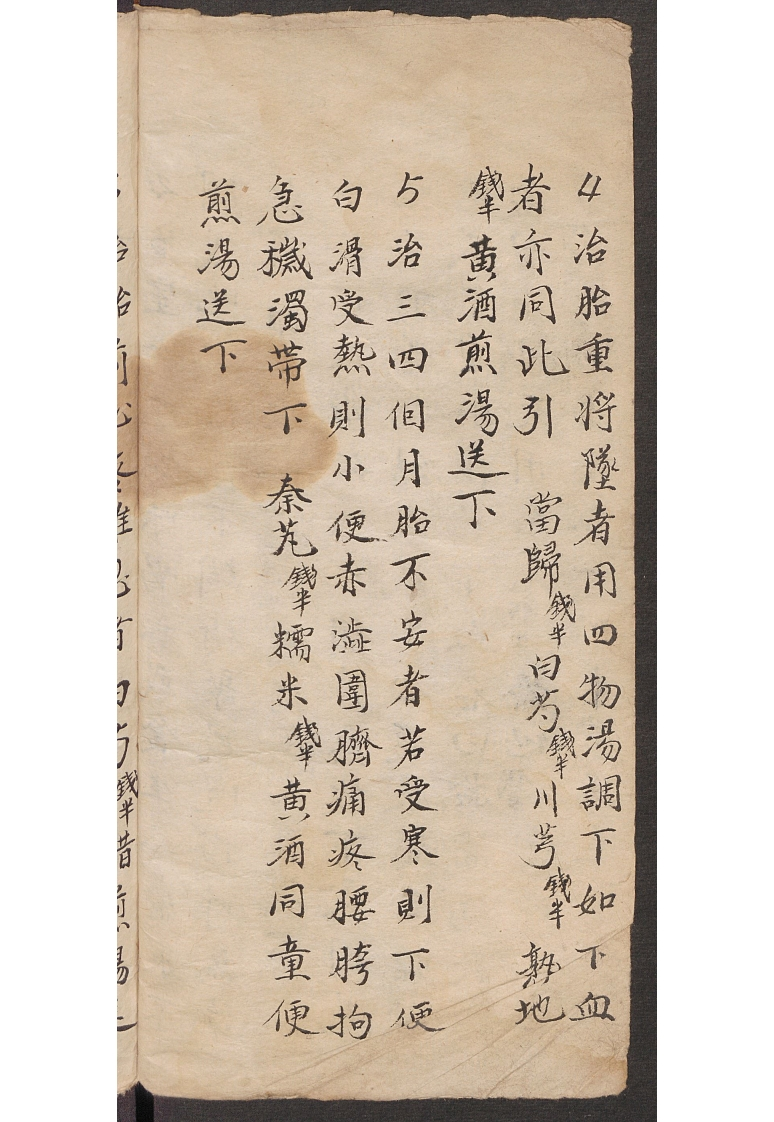 4治胎重将墜者用四物湯調下如下血
者亦同此引 當歸錢半白芍錢半川芎錢半熟地
錢半黃酒煎湯送下
5治三四個月胎不安者若受寒則下便
白滑受熱則小便赤澁圍臍痛疼腰胯拘
急穢濁帶下 秦艽錢半糯米錢半黃酒同童便
煎湯送下